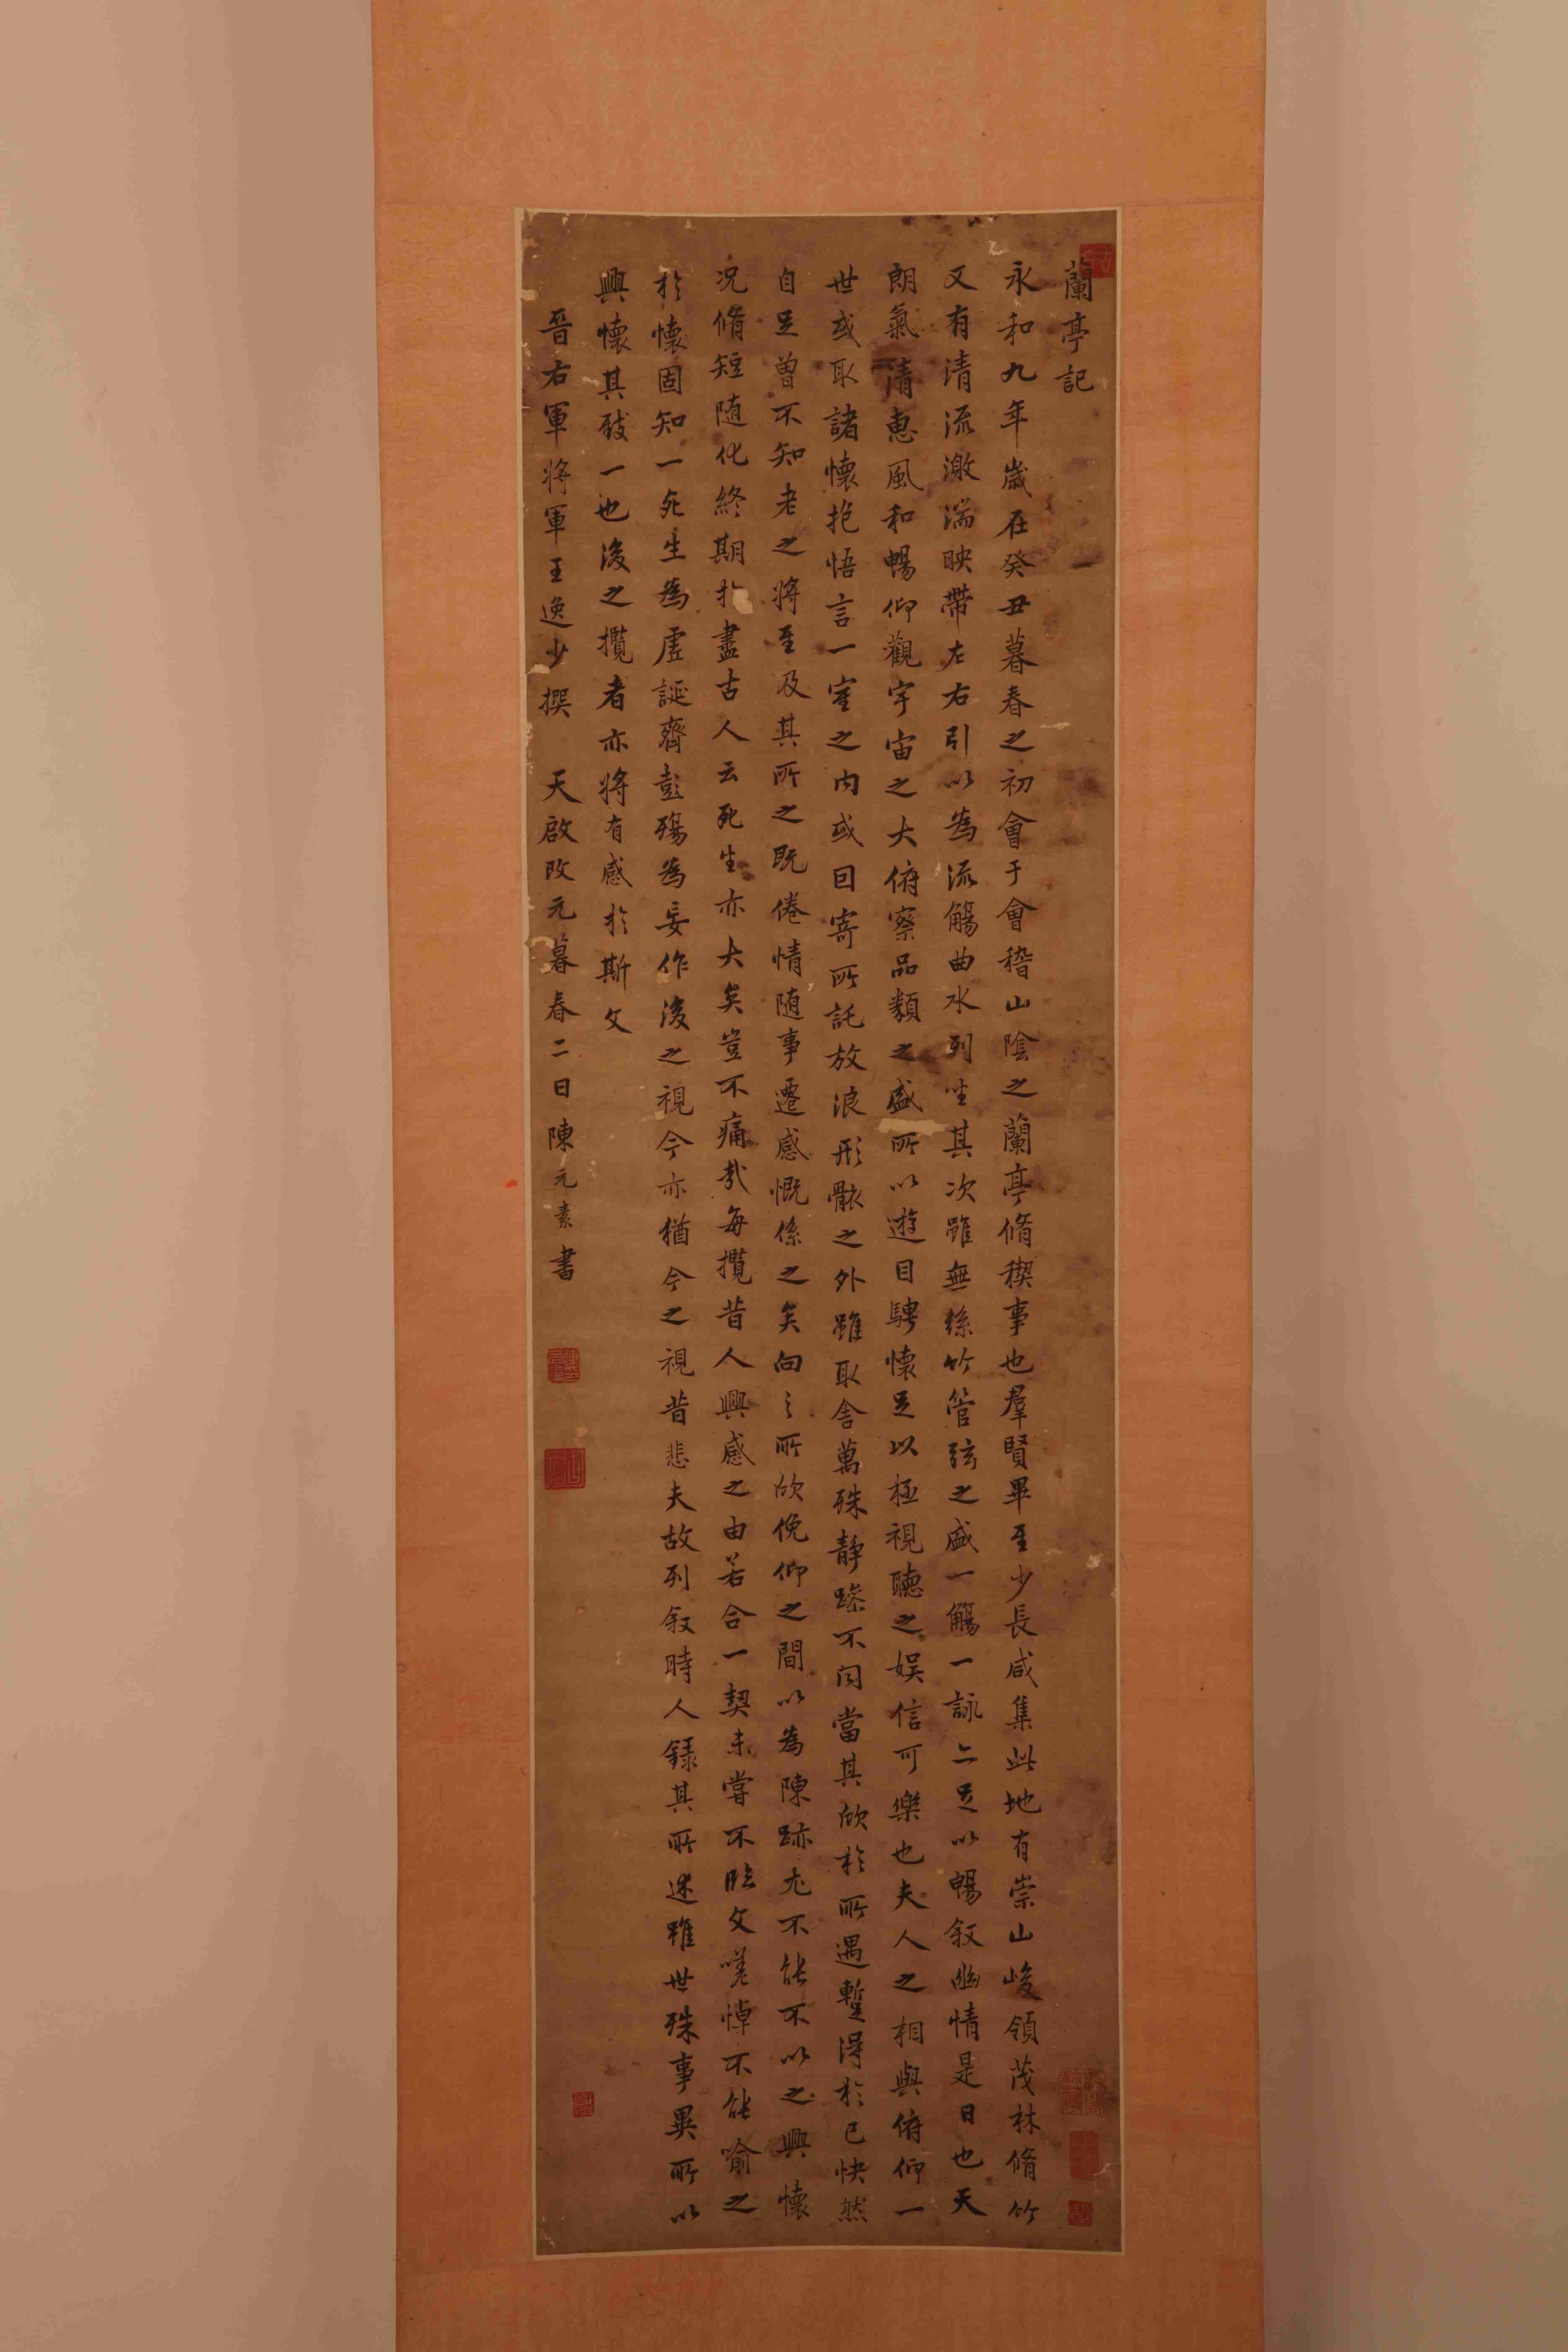 蘭亭記
永和九年歲在癸丑暮春之初會于會稽山陰之蘭亭脩稧事也羣賢畢至少長咸集此地有崇山峻領茂林脩竹
又有清流激湍暎帶左右引以為流觴曲水列坐其次雖無絲竹管弦之盛一觴一詠亦足以暢叙幽情是日也天
朗氣清惠風和暢仰觀宇宙之大俯察品類之盛所以遊目騁懷足以極視聽之娛信可樂也夫人之相與俯仰一
世或取諸懷抱悟言一室之內或因寄所託放浪形骸之外雖取舍萬殊靜躁不同當其欣於所遇蹔得於己快然
自足曾不知老之將至及其所之既倦情随事遷感慨係之矣向之所欣俛仰之間以為陳跡尤不能不以之興懷
況脩短随化終期於盡古人云死生亦大矣豈不痛哉每攬昔人興感之由若合一契未嘗不臨文嗟悼不能喻之
於懷固知一死生為虛誕齊彭殤為妄作後之視今亦猶今之視昔悲夫故列叙時人錄其所述雖世殊事異所以
興懷其致一也後之攬者亦將有感於斯文
晉右軍將軍王逸少撰 天啟改元暮春二日陳元素書